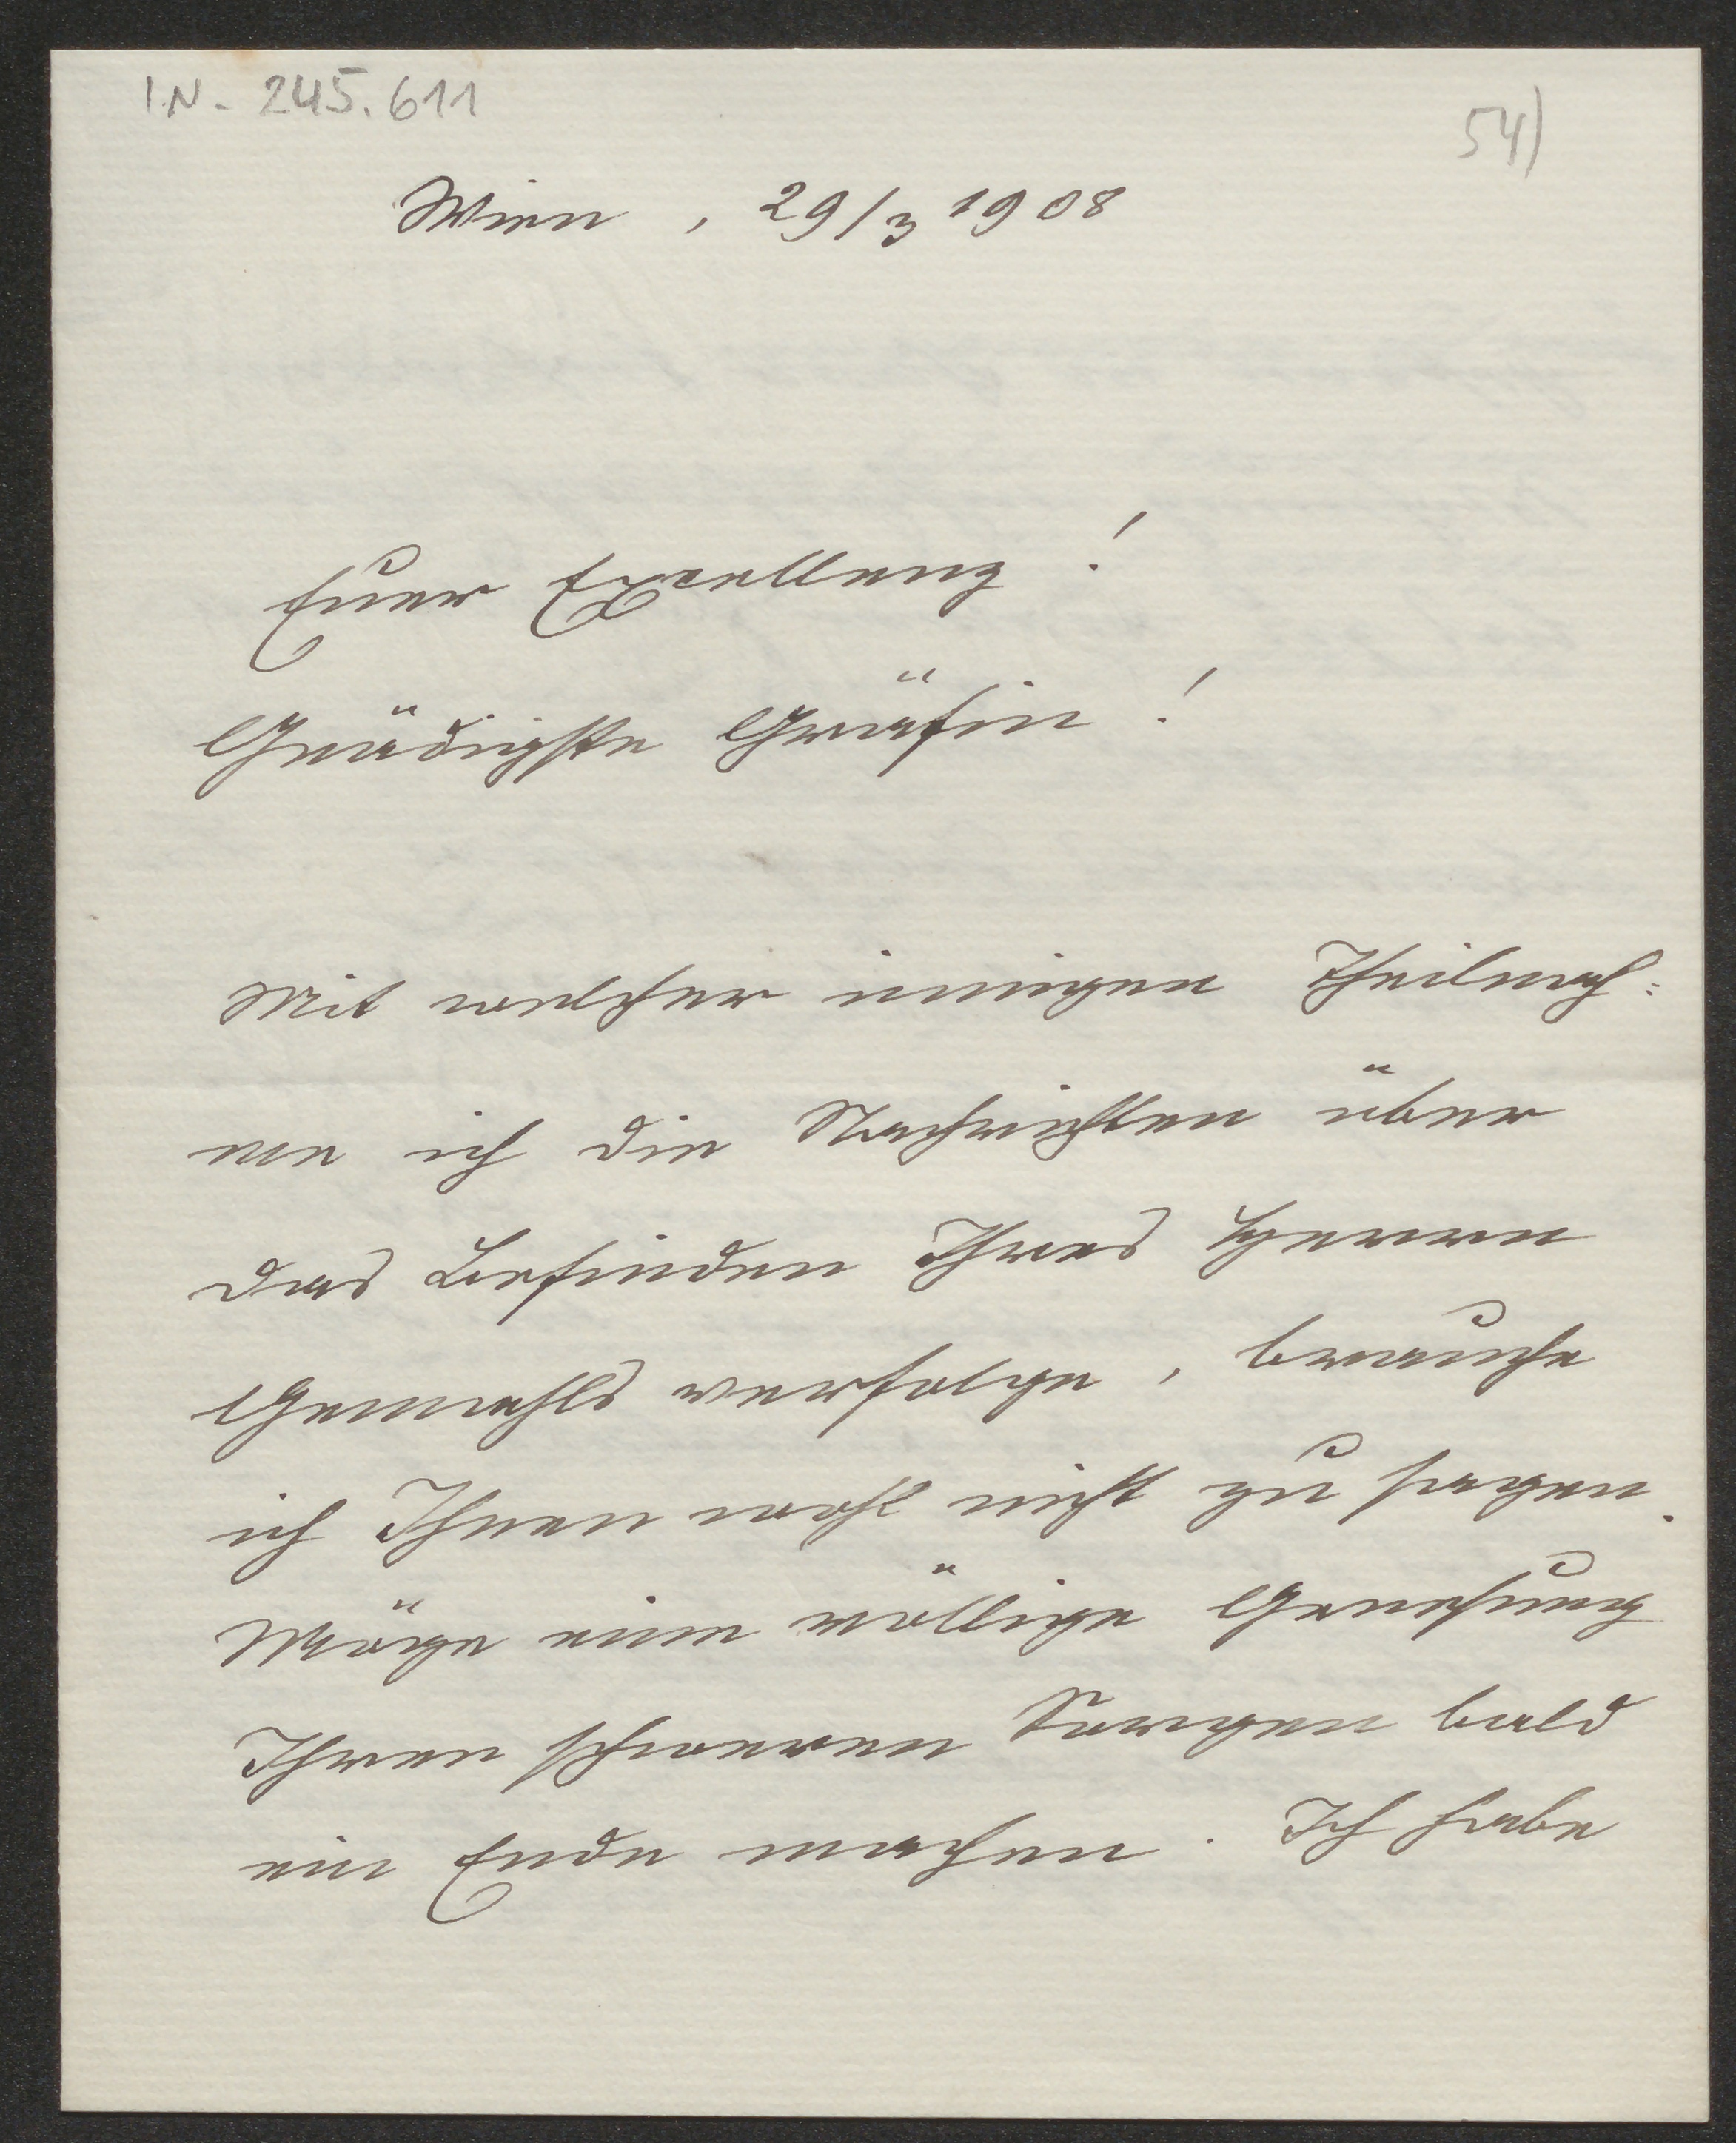 IN- 245.611
54)
Wien, 29/3 1908
Euer Excellenz!
Gnädigste Gräfin!
Mit welcher innigen Theilnah=
me ich die Nachrichten über
das Befinden Ihres Herrn
Gemahls verfolge, brauche
ich Ihnen wohl nicht zu sagen.
Möge eine völlige Genesung
Ihren schweren Sorgen bald
ein Ende machen. Ich habe